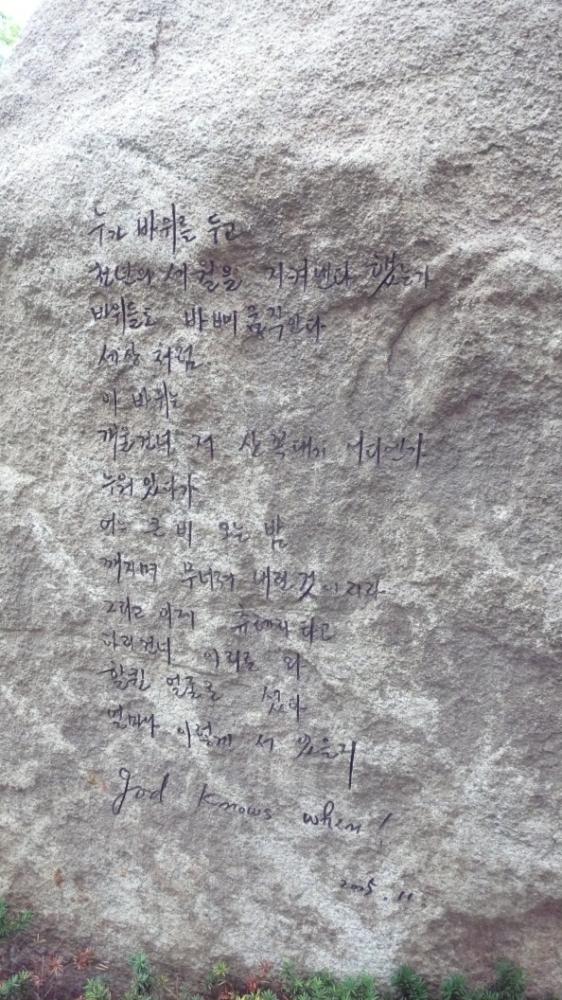 누가 바위를 두고
천년의 세월을 지켜낸다 했는가
바위들도 바삐 움직인다
세상 처럼
이 바위는
개울건너 저 산 꼭대기 어디엔가
누워 있다가
어느 큰 비 오는 밤
깨지며 무너져 내린 것이리라
그리고 이제 타고
다리건너 이리로 와
할퀸 얼굴로 섰다
얼마나 이렇게 서 있을지
god knows when!
2005.11